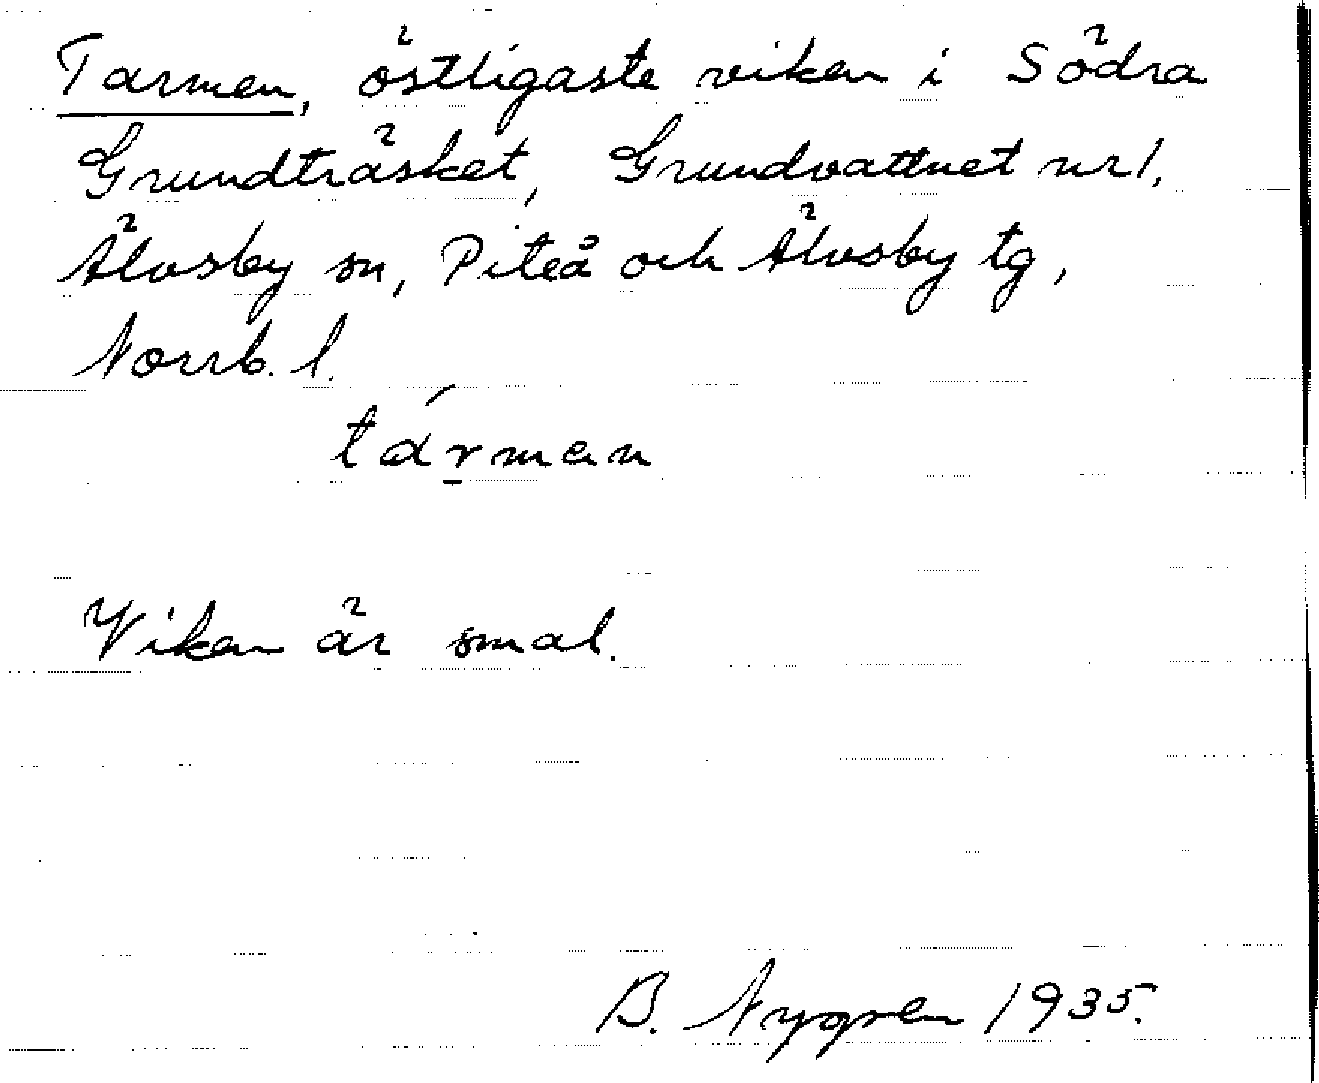 Tarmen, östligaste viken i Södra
Grundträsket, Grundvattnet nr 1,
Älvsby sn, Piteå och Älvsby tg,
Norrb. l.
tármɐn
Viken är smal.
B. Nygren 1935.